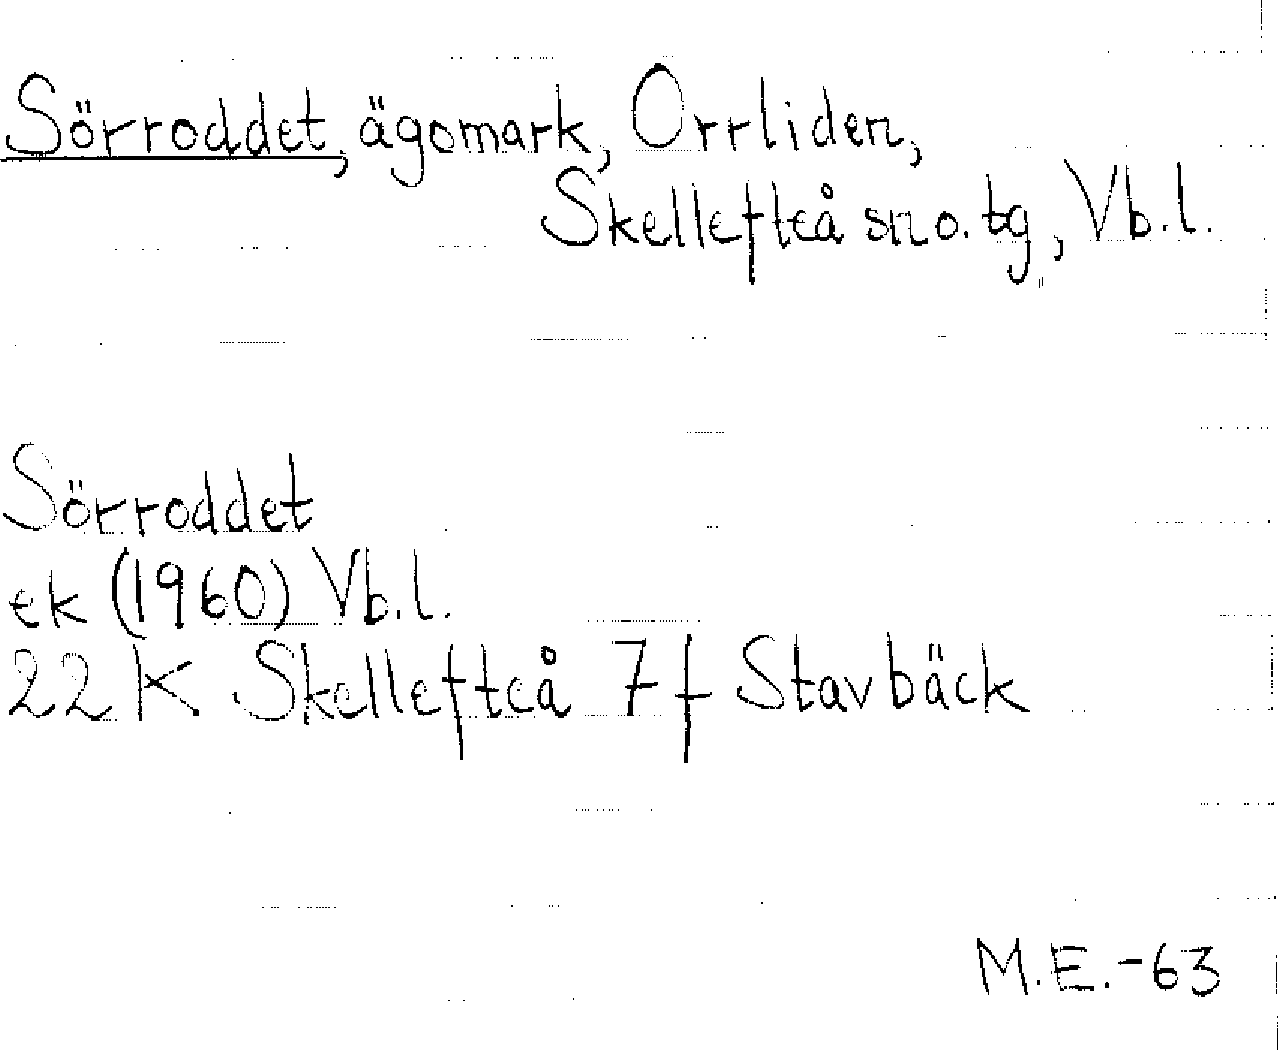 Sörroddet, ägomark, Orrliden,
Skellefteå sn o. tg, Vb.l.
Sörroddet
ek (1960) Vb.l.
22 K Skellefteå 7 f Stavbäck
M.E.-63